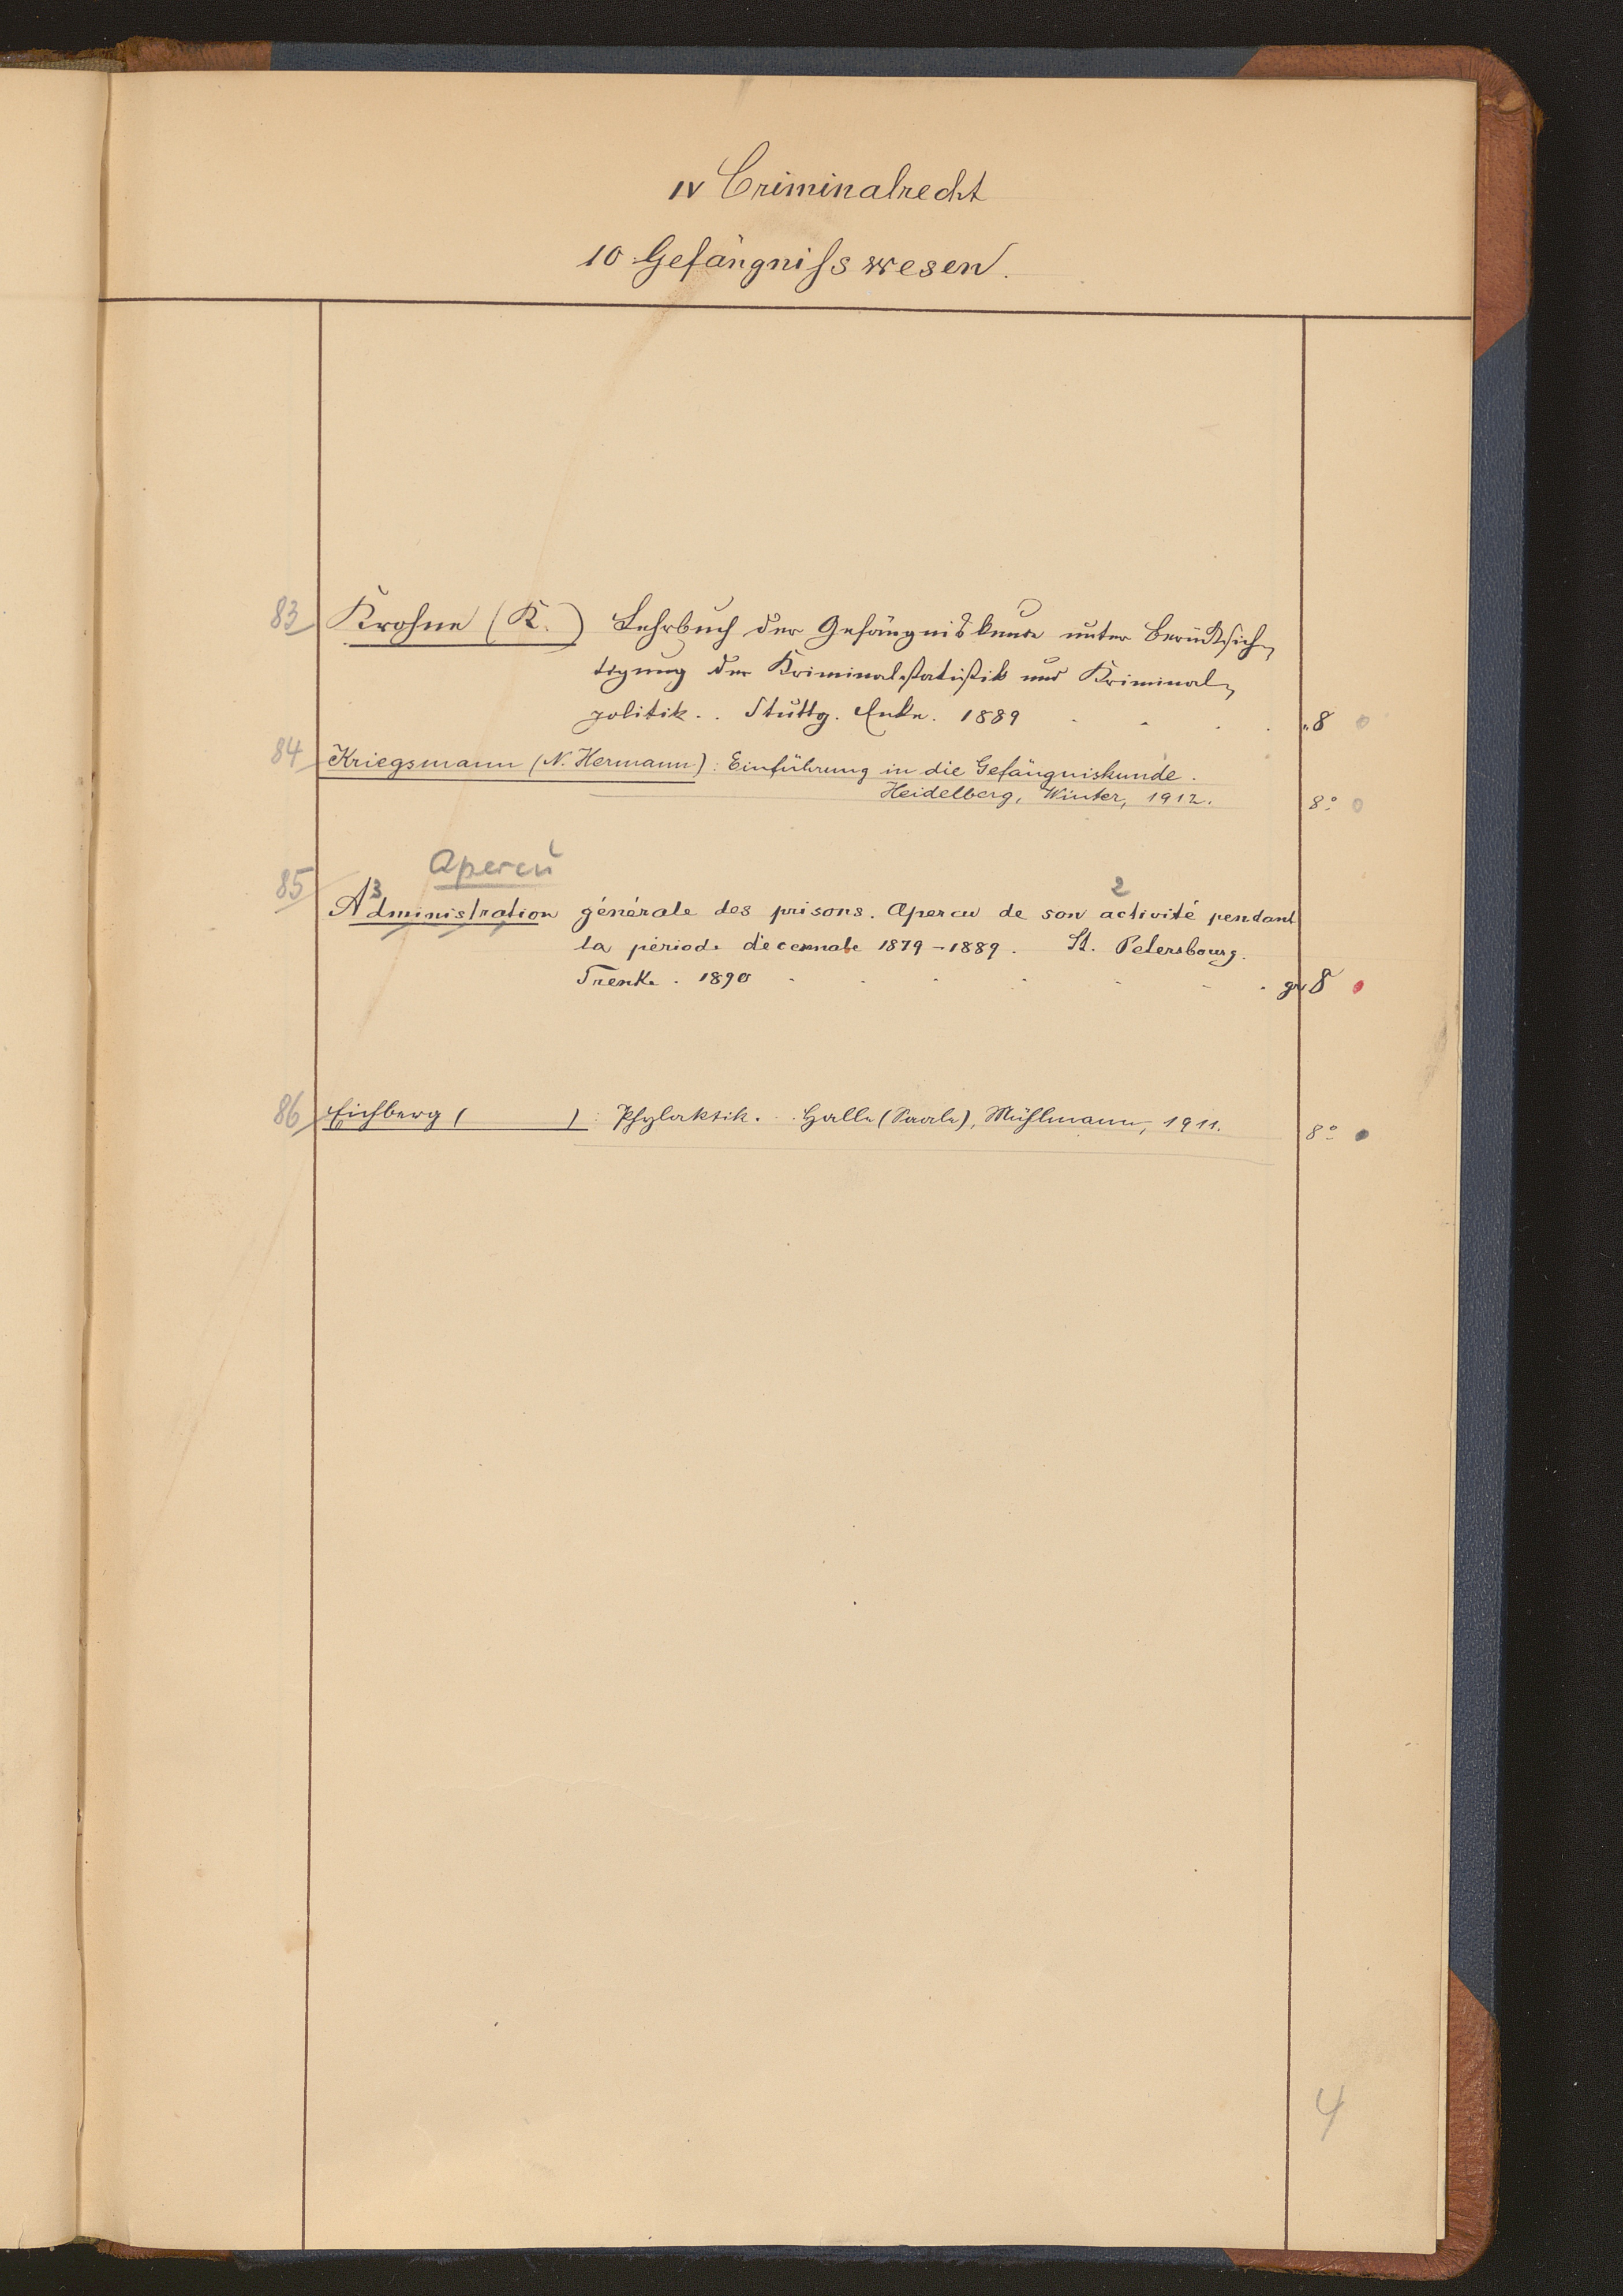 IV Criminalrecht
10 Gefängnisswesen.
83 Krohne (K.) Lehrbuch der Gefängniskunde unter Berücksich-
tigung der Kriminalstatistik und Kriminal-
politik. . Stuttg. Enke. 1889 . . . . 8
84 Kriegsmann (N. Hermann): Einführung in die Gefängniskunde.
Heidelberg, Winter, 1912. 8°
Apercu
85 3 2
Administration générale des prisons. Apercu de son activité pendant
la période décennale 1879-1889. St. Petersbourg.
Trenke. 1890 . . . . . . . gr 8
86 Eichberg ( ): Phylaktik. . . Halle (Saale), Mühlmann, 1911. 8°
4